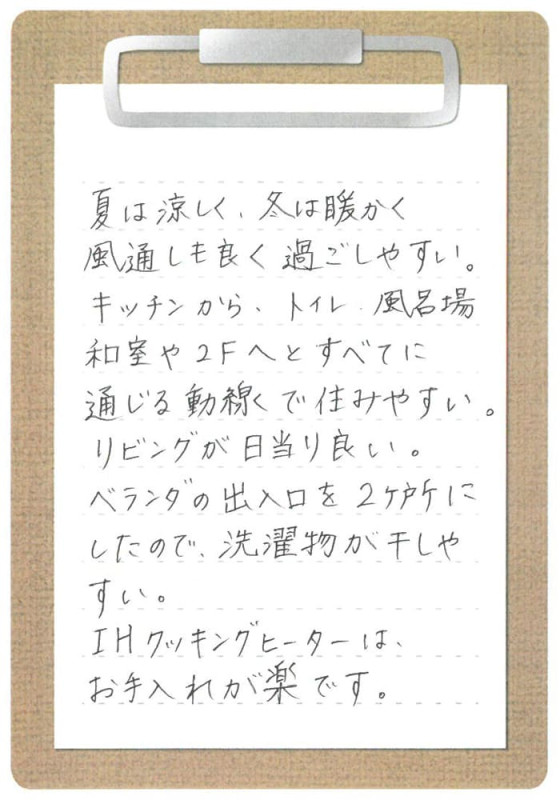 夏は涼しく、冬は暖かく
風通しも良く過ごしやすい。
キッチンから、トイレ.風呂場
和室や2Fへとすべてに
通じる動線くで住みやすい。
リビングが日当り良い。
ベランダの出入口を2ケ所に
したので、洗濯物が干しや
すい。
IHクッキングヒーターは、
お手入れが楽です。